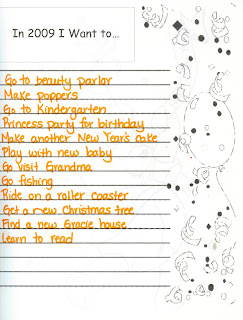 In 2009 I Want to...
Go to beauty parlor
Make poppers
Go to Kindergarten
Princess party for birthday
Make another New Year's cake
Play with new baby
Go visit Grandma
Go fishing
Ride on a roller coaster
Get a new Christmas tree
Find a new Gracie house
Learn to read